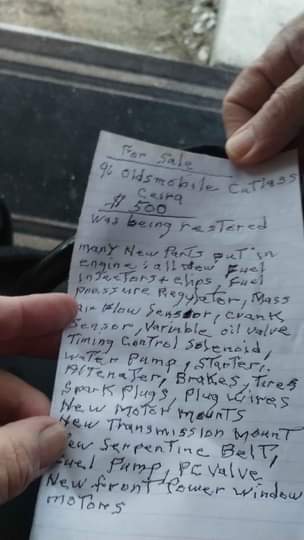 For Sale
96 Oldsmobile Cutlass
Ceira
$ 500
was being restored
many New Parts put in
engine: all New Fuel
injectors + clips Fuel
pressure Regulator, Mass
air Flow Sensor, Crank
Sensor, Varible oil valve
Timing Control Solenoid,
water Pump, Starter,
Alternater, Brakes, Tires
Spark Plugs, Plug Wires
New Motor mounts
New Transmission Mount
New Serpentine Belt,
Fuel Pump, PC Valve
New front Power window
motors